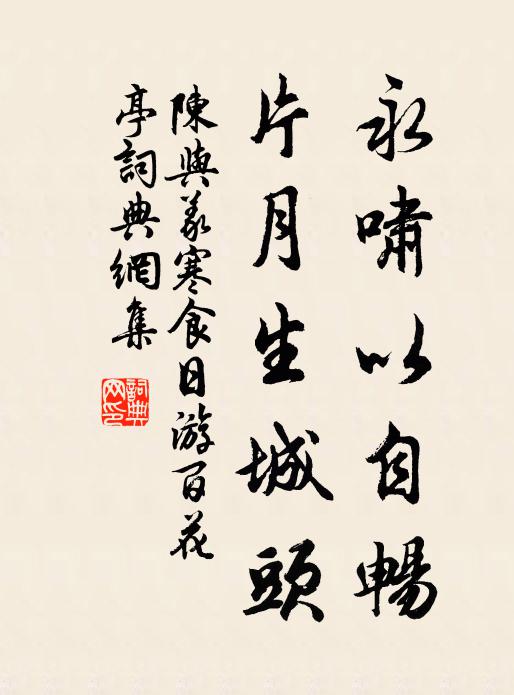 永嘯以自暢
片月生城頭
陳與義寒食日游百花
亭詞典網集
詞典
网印